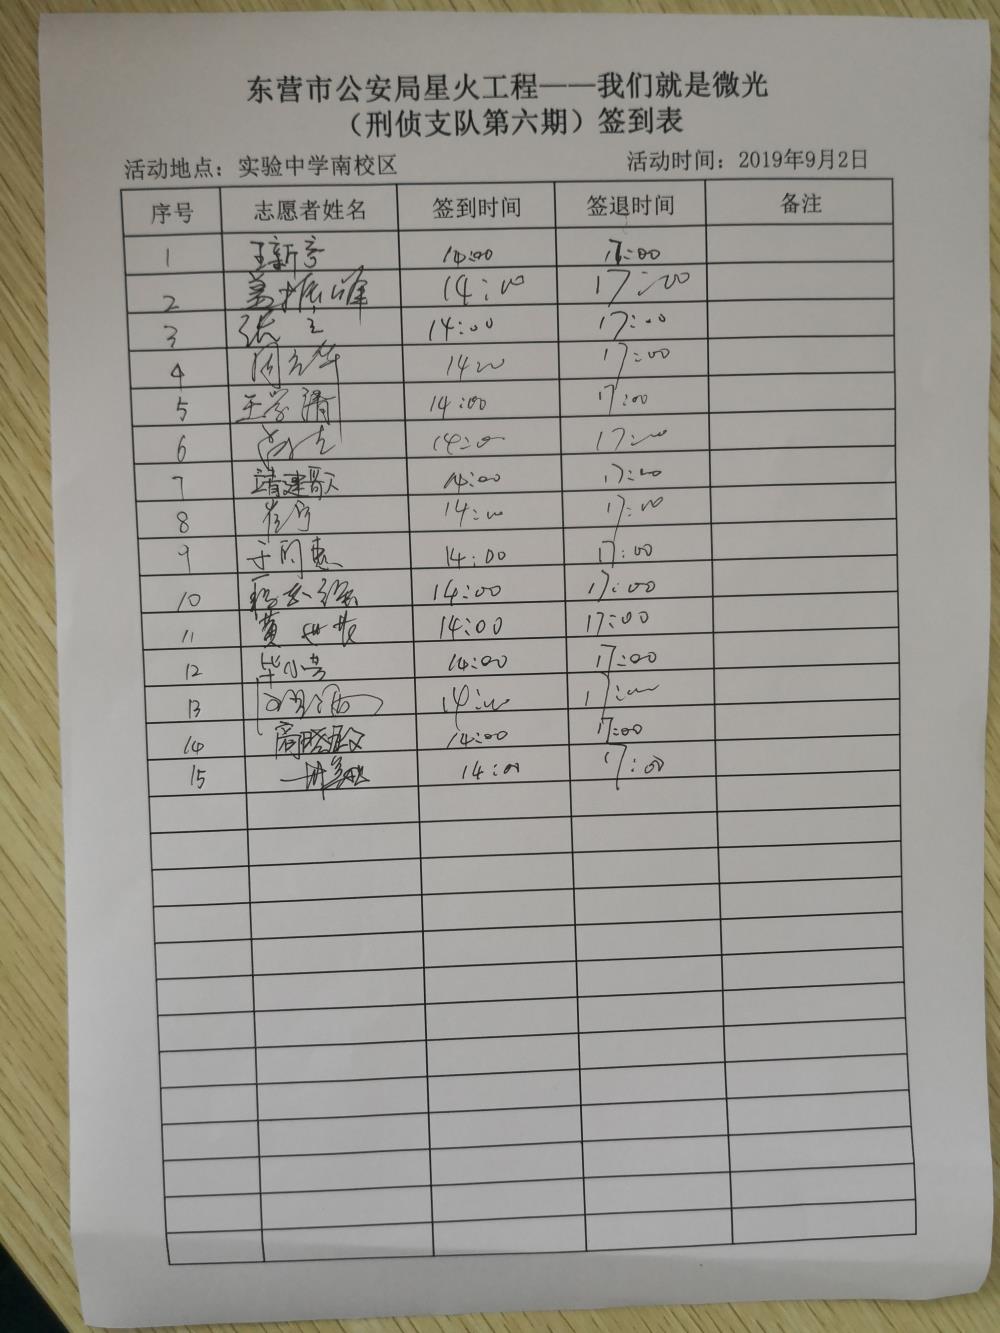 东营市公安局星火工程——我们就是微光
（刑侦支队第六期）签到表
活动地点：实验中学南校区 活动时间：2019年9月2日
序号 志愿者姓名 签到时间 签退时间 备注
1 14:00 17:00
2 14:00 17:00
3 14:00 17:00
4 1400 17:00
5 王学清 14:00 17:00
6 14:00 17:00
7 14:00 17:00
8 14:00 17:00
9 14:00 17:00
10 14:00 17:00
11 14:00 17:00
12 14:00 17:00
13 14:00 17:00
14 14:00 17:00
15 14:00 17:00